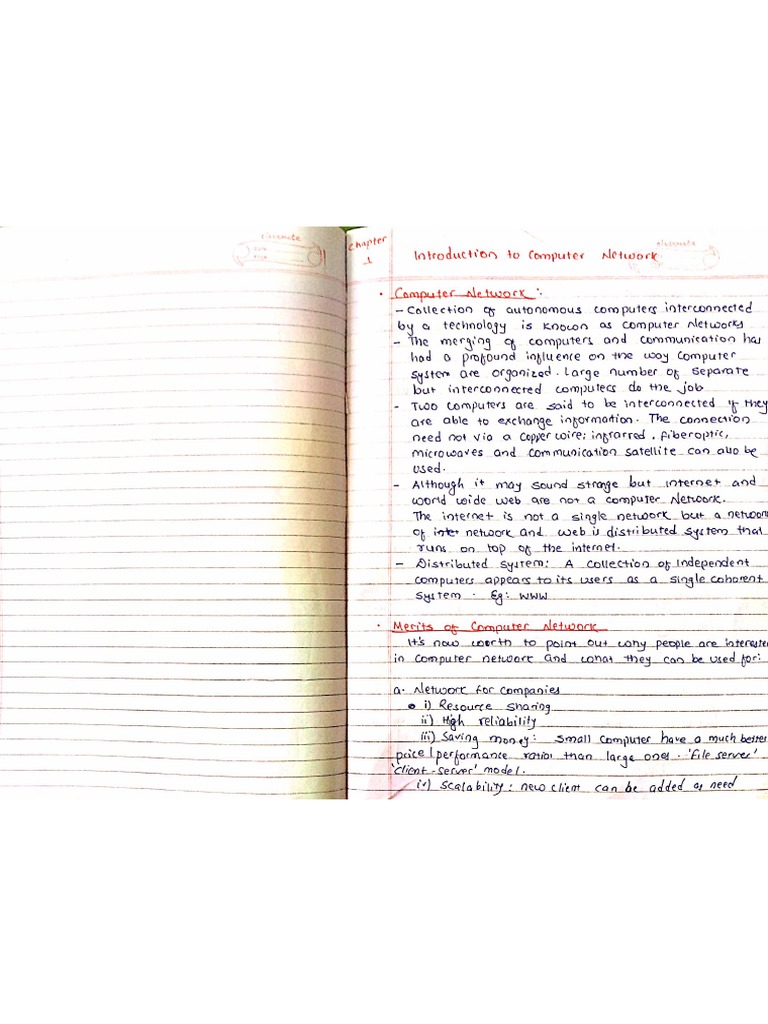 classmate
Date
Page
Chapter
1
classmate
Introduction to Computer Network
• Computer Network :
- Collection of autonomous computers interconnected
by a technology is known as computer Networks
- The merging of computers and communication has
had a profound influence on the way computer
system are organized. Large number of separate
but interconnected computers do the job
- Two computers are said to be interconnected if they
are able to exchange information. The connection
need not via a copper wire; infrarred, fiberoptic,
microwaves and communication satellite can also be
used.
- Although it may sound strange but internet and
world wide web are not a computer Network.
The internet is not a single network but a network
of network and web is distributed system that
runs on top of the internet.
- Distributed system: A collection of Independent
computers appears to its users as a single coherent
system. Eg: WWW
• Merits of Computer Network
It's now worth to point out why people are interested
in computer network and what they can be used for:
a. Network for companies
i) Resource sharing
ii) High reliability
iii) Saving money: small computer have a much better
price/performance ratio than large ones. 'file server'
'client-server' model.
iv) Scalability: new client can be added as need